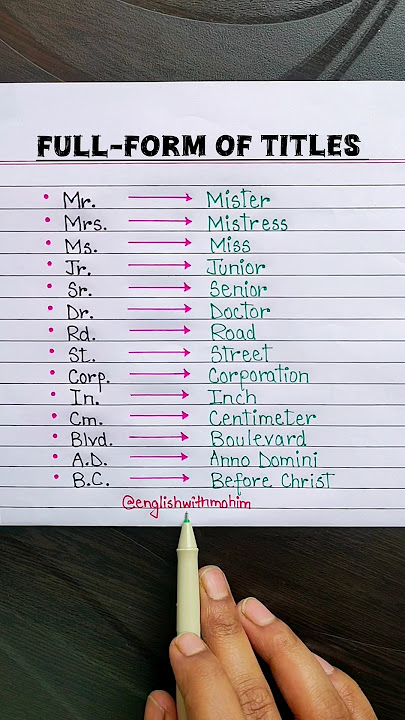 FULL-FORM OF TITLES
• Mr. → Mister
• Mrs. → Mistress
• Ms. → Miss
• Jr. → Junior
• Sr. → Senior
• Dr. → Doctor
• Rd. → Road
• St. → Street
• Corp. → Corporation
• In. → Inch
• Cm. → Centimeter
• Blvd. → Boulevard
• A.D. → Anno Domini
• B.C. → Before Christ
@englishwithmohim